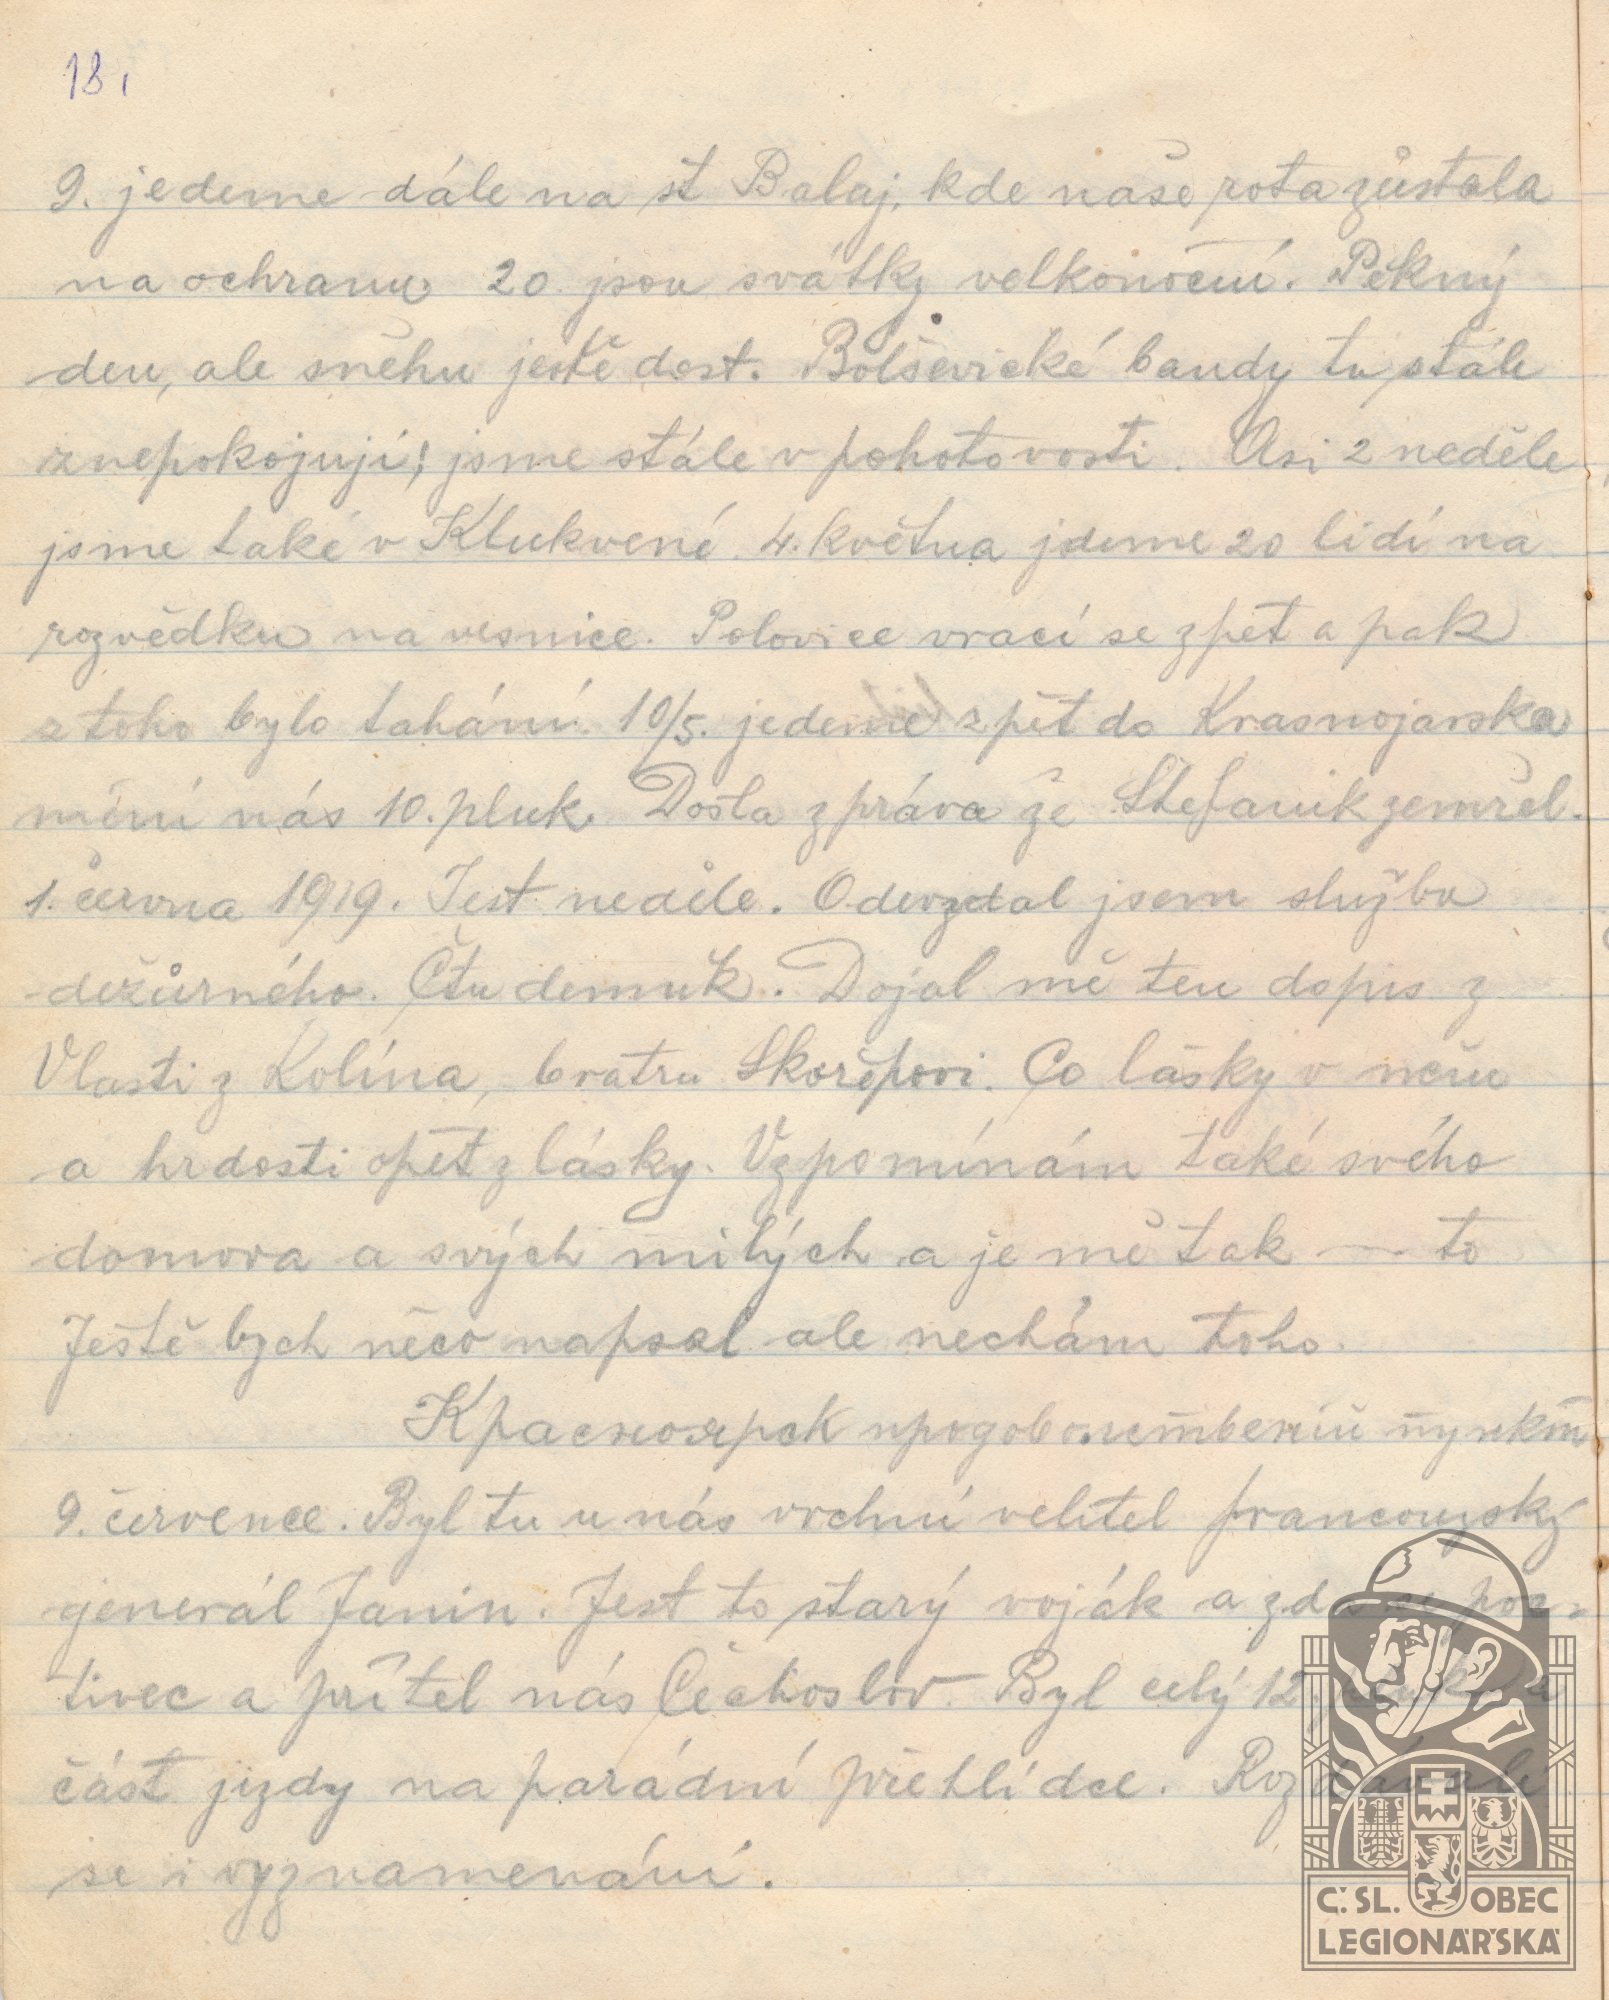 18,
9. jedeme dále na st Balaj, kde naše rota zůstala
na ochranu 20. jsou svátky velkonoční. Pěkný
den, ale sněhu ještě dost. Bolševické bandy tu stále
znepokojují; jsme stále v pohotovosti. Asi 2 neděle
jsme také v Klukvené. 4. května jdeme 20 lidí na
rozvědku na vesnice. Polovice vrací se zpět a pak
z toho bylo tahání. 10/5. jedeme zpět do Krasnojarska
mění nás 10. pluk. Došla zpráva že Štefanik zemřel.
1. června 1919. Jest neděle. Odevzdal jsem službu
dežůrného. Čtu denník. Dojal mě ten dopis z
Vlasti z Kolína, bratru Skořepovi. Co lásky v něm
a hrdosti opět z lásky. Vzpomínám také svého
domova a svých milých a je mě tak — to
Ještě bych něco napsal ale nechám toho.
Красноярск
9. července. Byl tu u nás vrchní velitel francouzský
generál Janin. Jest to starý voják a zdá se poc-
tivec a přítel nás Čechoslov. Byl celý 12. pluk a
část jizdy na parádní přehlídce. Rozdávali
se i vyznamenání.
Č. SL. OBEC
LEGIONÁŘSKÁ